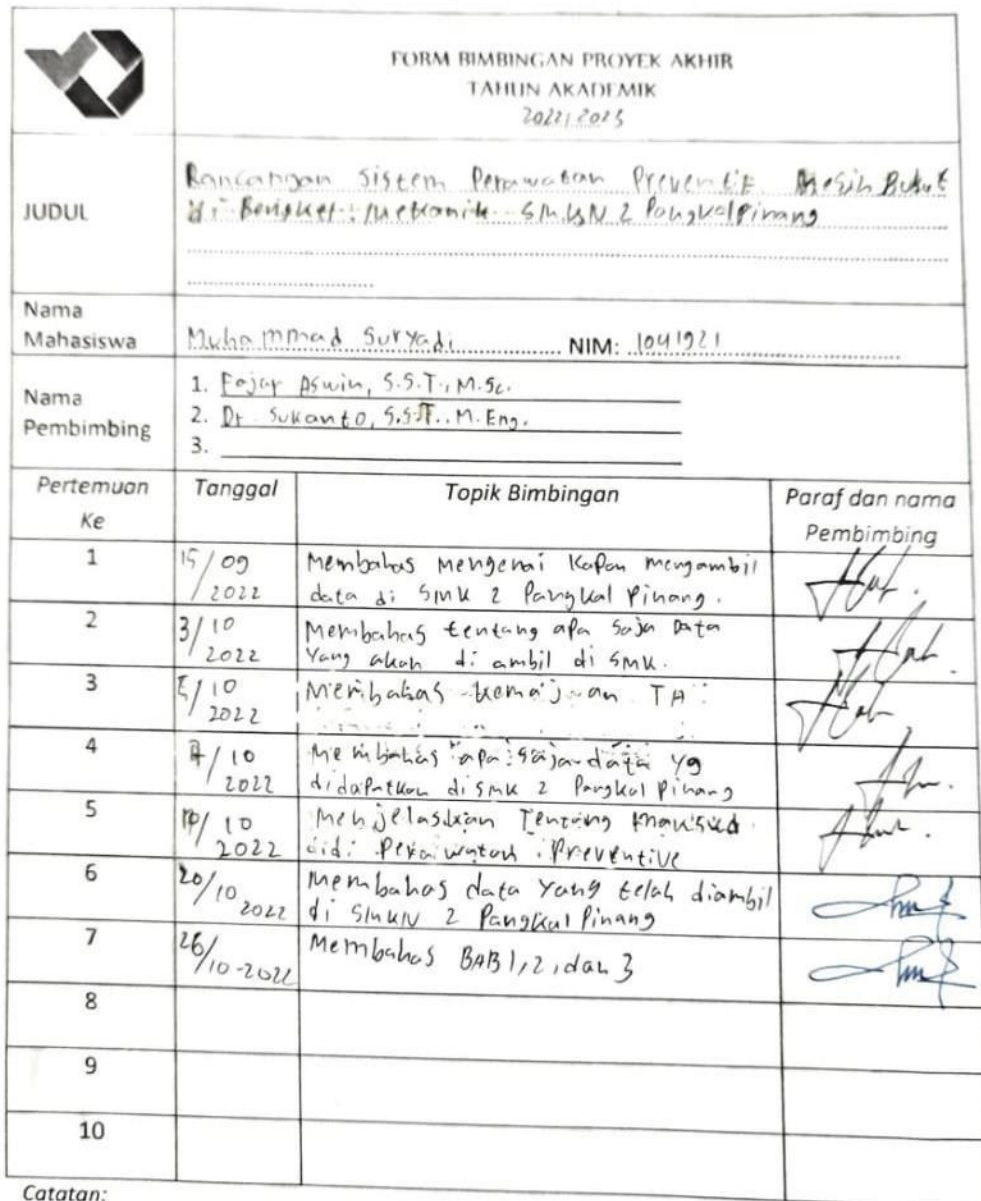 FORM BIMBINGAN PROYEK AKHIR
TAHUN AKADEMIK
2022/2023
JUDUL
Rancangan Sistem Perawatan Preventif Mesin Bubut
di Bengkel Mekanik SMKN 2 Pangkalpinang
Nama
Mahasiswa
Muhammad Suryadi NIM: 1041921
Nama
Pembimbing
1. Fajar Aswin, S.S.T., M.Sc.
2. Dr. Sukanto, S.S.T., M.Eng.
3.
Pertemuan
Ke
Tanggal
Topik Bimbingan
Paraf dan nama
Pembimbing
1
15/09
2022
Membahas mengenai Kapan mengambil
data di SMK 2 Pangkal Pinang.
2
3/10
2022
Membahas tentang apa saja Data
Yang akan di ambil di SMK.
3
/10
2022
Membahas kemajuan TA
4
/10
2022
Membahas apa saja data yg
didapatkan di SMK 2 Pangkal Pinang
5
/10
2022
Menjelaskan Tentang maksud
Perawatan Preventive
6
20/10
2022
Membahas data Yang telah diambil
di SMKN 2 Pangkal Pinang
7
26/10-2022
Membahas BAB 1, 2, dan 3
8
9
10
Catatan: